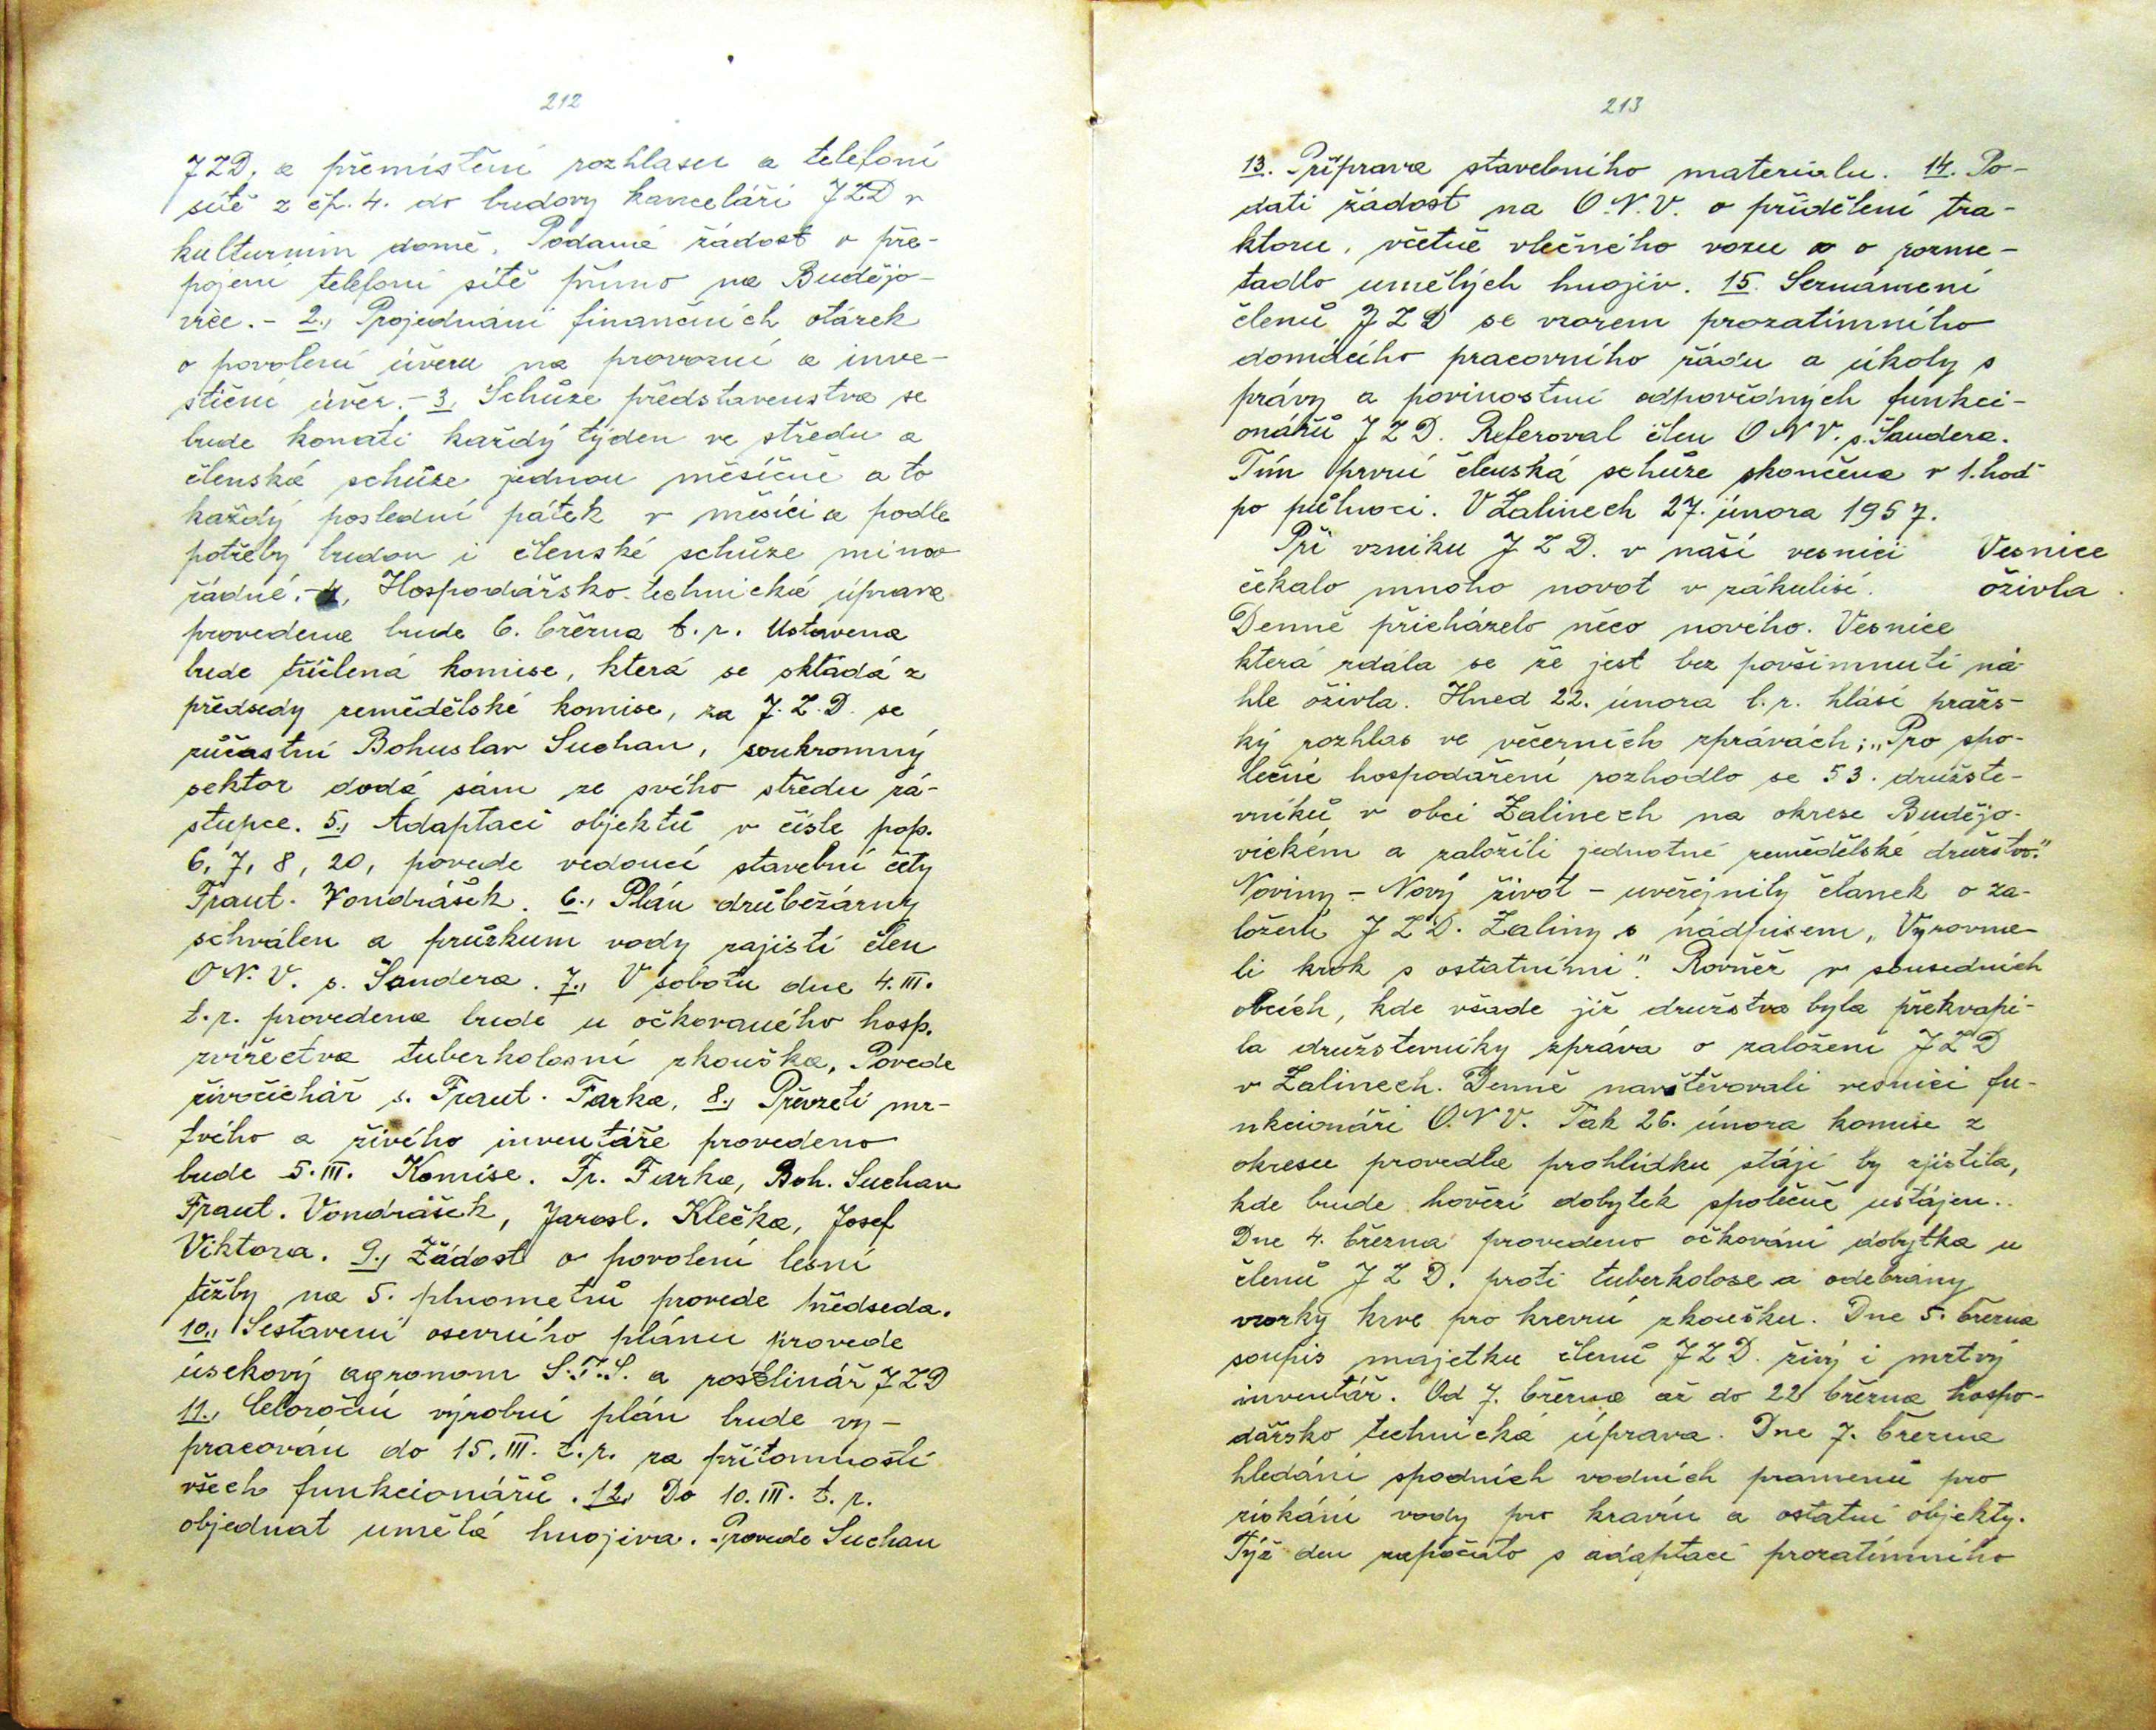 212
JZD, a přemístění rozhlasu a telefoní
sítě z čp. 4. do budovy kanceláři JZD v
kulturním domě. Podané žádost o pře-
pojení telefoní sítě přímo na Budějo-
vice. - 2., Projednání finančních otázek
o povolení úvěru na provozní a inve-
stiční úvěr. - 3, Schůze představenstva se
bude konati každý týden ve středu a
členská schůze jednou měsíčně a to
každý poslední pátek v měsíci a podle
potřeby budou i členské schůze mimo
řádné. - 4, Hospodářsko-technická úprava
provedena bude 6. března t. r. Ustavena
bude tříčlená komise, která se skládá z
předsedy zemědělské komise, za J. Z. D. se
zúčastní Bohuslav Suchan, soukromný
sektor dodá sám ze svého středu zá-
stupce. 5., Adaptaci objektů v čísle pop.
6, 7, 8, 20, povede vedoucí stavební čěty
Frant. Vondrášek. 6., Plán drůbežárny
schválen a průzkum vody zajistí člen
O. N. V. s. Šandera. 7., V sobotu dne 4. III.
t. r. provedena bude u očkovaného hosp.
zvířectva tuberkolosní zkouška, Povede
živočichář s. Frant. Farka, 8., Převzetí mr-
tvého a živého inventáře provedeno
bude 5. III. Komise. Fr. Farka, Boh. Suchan
Frant. Vondrášek, Jarosl. Klečka, Josef
Viktora. 9., Žádost o povolení lesní
těžby na 5. plnometrů provede předseda.
10., Sestavení osevního plánu provede
úsekový agronom S. T. S. a rostlinář JZD
11., Celoroční výrobní plán bude vy-
pracován do 15. III. t. r. za přítomnosti
všech funkcionářů. 12., Do 10. III. t. r.
objednat umělá hnojiva. Provede Suchan
213
13. Příprava stavebního materiálu. 14. Po-
dati žádost na O. N. V. o přidělení tra-
ktoru, včetně vlečného vozu a o rozme-
tadlo umělých hnojiv. 15. Seznámení
členů JZD se vzorem prozatimního
domácího pracovního řádu a úkoly s
právy a povinostmi odpovědných funkci-
onářů JZD. Referoval člen ONV. s. Šandera.
Tím první členská schůze skončena v 1. hod
po půlnoci. V Zalinech 27. února 1957.
Při vzniku JZD. v naší vesnici
čekalo mnoho novot v zákulisí.
Vesnice
oživla.
Denně přicházelo něco nového. Vesnice
která zdála se že jest bez povšimnutí ná-
hle oživla. Hned 22. února t. r. hlásí praž-
ký rozhlas ve večerních zprávách; „Pro spo-
lečné hospodaření rozhodlo se 53. družste-
vníků v obci Zalinech na okrese Budějo-
vickém a založili jednotné zemědělské družstvo."
Noviny - Nový život - uveřejnily članek o za-
ložení JZD. Zaliny s nádpisem „Vyrovna-
li krok s ostatními". Rovněž v sousedních
obcích, kde všade již družstva byla překvapi-
la družsterníky zpráva o založení JZD
v Zalinech. Denně navštěvovali vesnici fu-
nkcionáři O. N V. Tak 26. února komise z
okresu provedla prohlídku stájí by zjistila,
kde bude hovězí dobytek společně ustájen..
Dne 4. března provedeno očkování dobytka u
členů JZD. proti tuberkolose a odebrány
vzorky krve pro krevní zkoušku. Dne 5. března
soupis majetku členů JZD. živý i mrtvý
inventář. Od 7. března až do 22 března hospo-
dářsko technická úprava. Dne 7. března
hledání spodních vodních pramenů pro
získání vody pro kravín a ostatní objekty.
Týž den započato s adaptací prozatímního